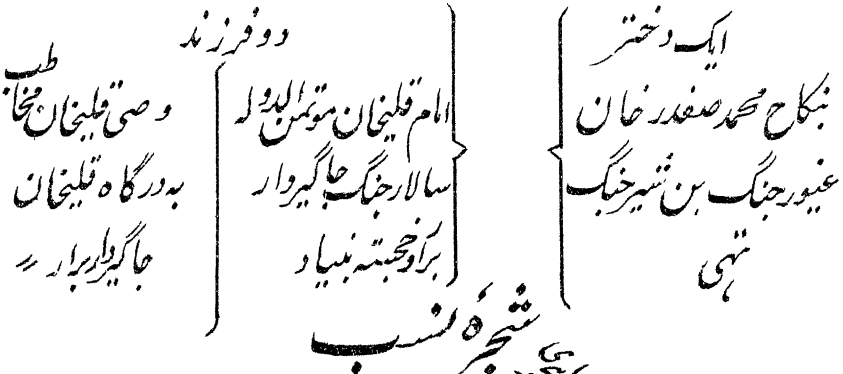 ایک دختر
بنکاح محمد صفدر خان
غیور جنگ بن شیر جنگ
تهی
دو فرزند
امام قلیخان موتمن الدوله
سالار جنگ جاگیردار
برار خجسته بنیاد
وصی قلیخان مخاطب
به درگاه قلیخان
جاگیردار برار
شجرۂ نسب